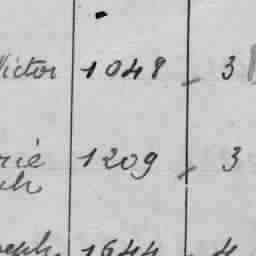 Victor 1048 - 3
rié 1209 - 3
ph
seph 1644 - 4